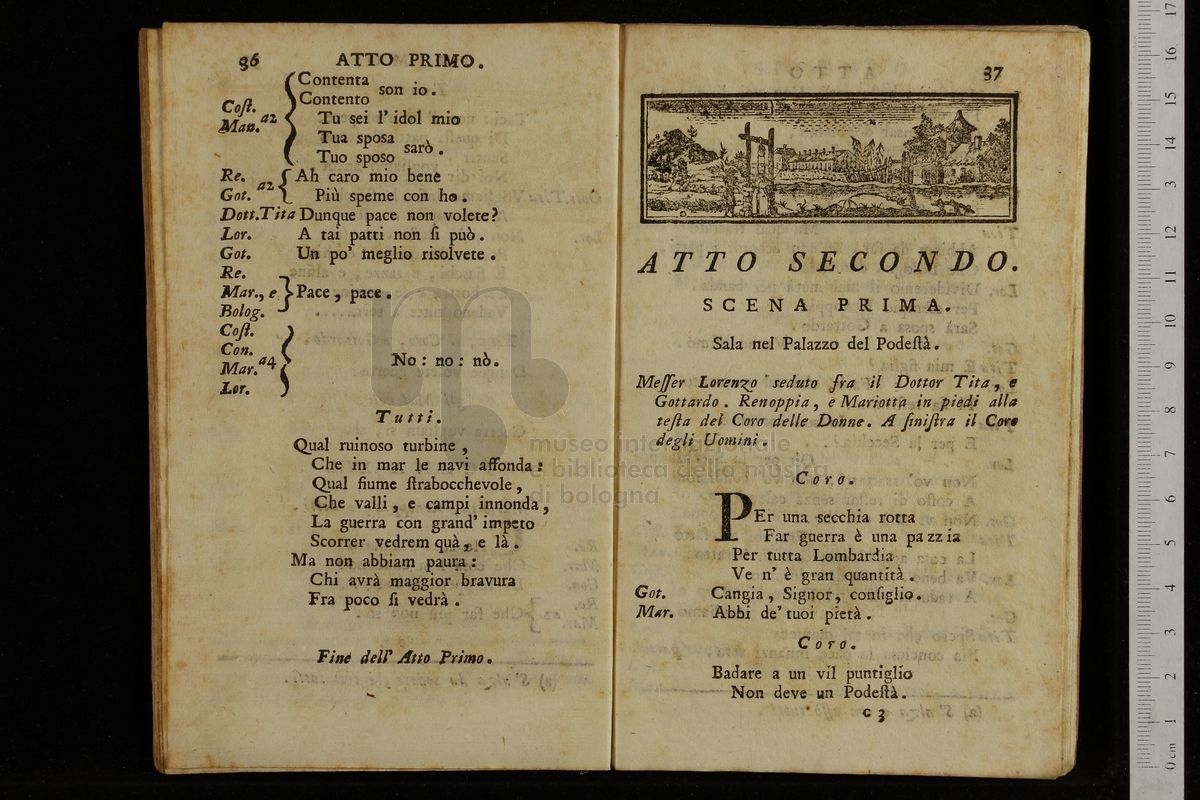 36 ATTO PRIMO.
Contenta
Contento son io.
Coſt.
Man. a2
Tu sei l' idol mio
Tua sposa
Tuo sposo sarò.
Re. Ah caro mio bene
Got. a2 Più speme con ho.
Dott.Tita Dunque pace non volete?
Lor. A tai patti non ſi può.
Got. Un po' meglio risolvete.
Re.
Mar., e Pace, pace.
Bolog.
Coſt.
Con.
Mar. a4 No: no: nò.
Lor.
Tutti.
Qual ruinoso turbine,
Che in mar le navi affonda:
Qual fiume ſtrabocchevole,
Che valli, e campi innonda,
La guerra con grand' impeto
Scorrer vedrem quà, e là.
Ma non abbiam paura:
Chi avrà maggior bravura
Fra poco ſi vedrà.
Fine dell' Atto Primo.
37
ATTO SECONDO.
SCENA PRIMA.
Sala nel Palazzo del Podeſtà.
Meſſer Lorenzo seduto fra il Dottor Tita, e
Gottardo. Renoppia, e Mariotta in piedi alla
teſta del Coro delle Donne. A ſiniſtra il Coro
degli Uomini.
Coro.
PEr una secchia rotta
Far guerra è una pazzia
Per tutta Lombardia
Ve n' è gran quantità.
Got. Cangia, Signor, conſiglio.
Mar. Abbi de' tuoi pietà.
Coro.
Badare a un vil puntiglio
Non deve un Podeſtà.
G 3
museo internazionale
e biblioteca della musica
di bologna
0 cm 1 2 3 4 5 6 7 8 9 10 11 12 13 14 15 16 17